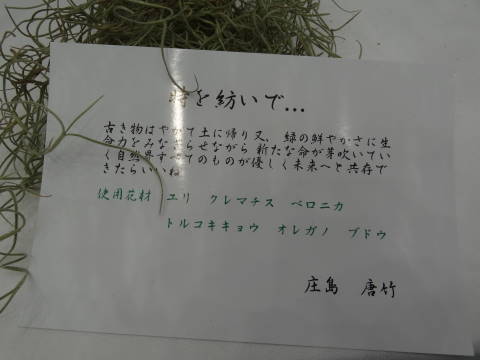 時を紡いで…
古き物はやがて土に帰り又、緑の鮮やかさに生
命力をみなぎらせながら新たな命が芽吹いてい
く自然界すべてのものが優しく未来へと共存で
きたらいいね
使用花材 ユリ クレマチス ベロニカ
トルコキキョウ オレガノ ブドウ
庄島 唐竹